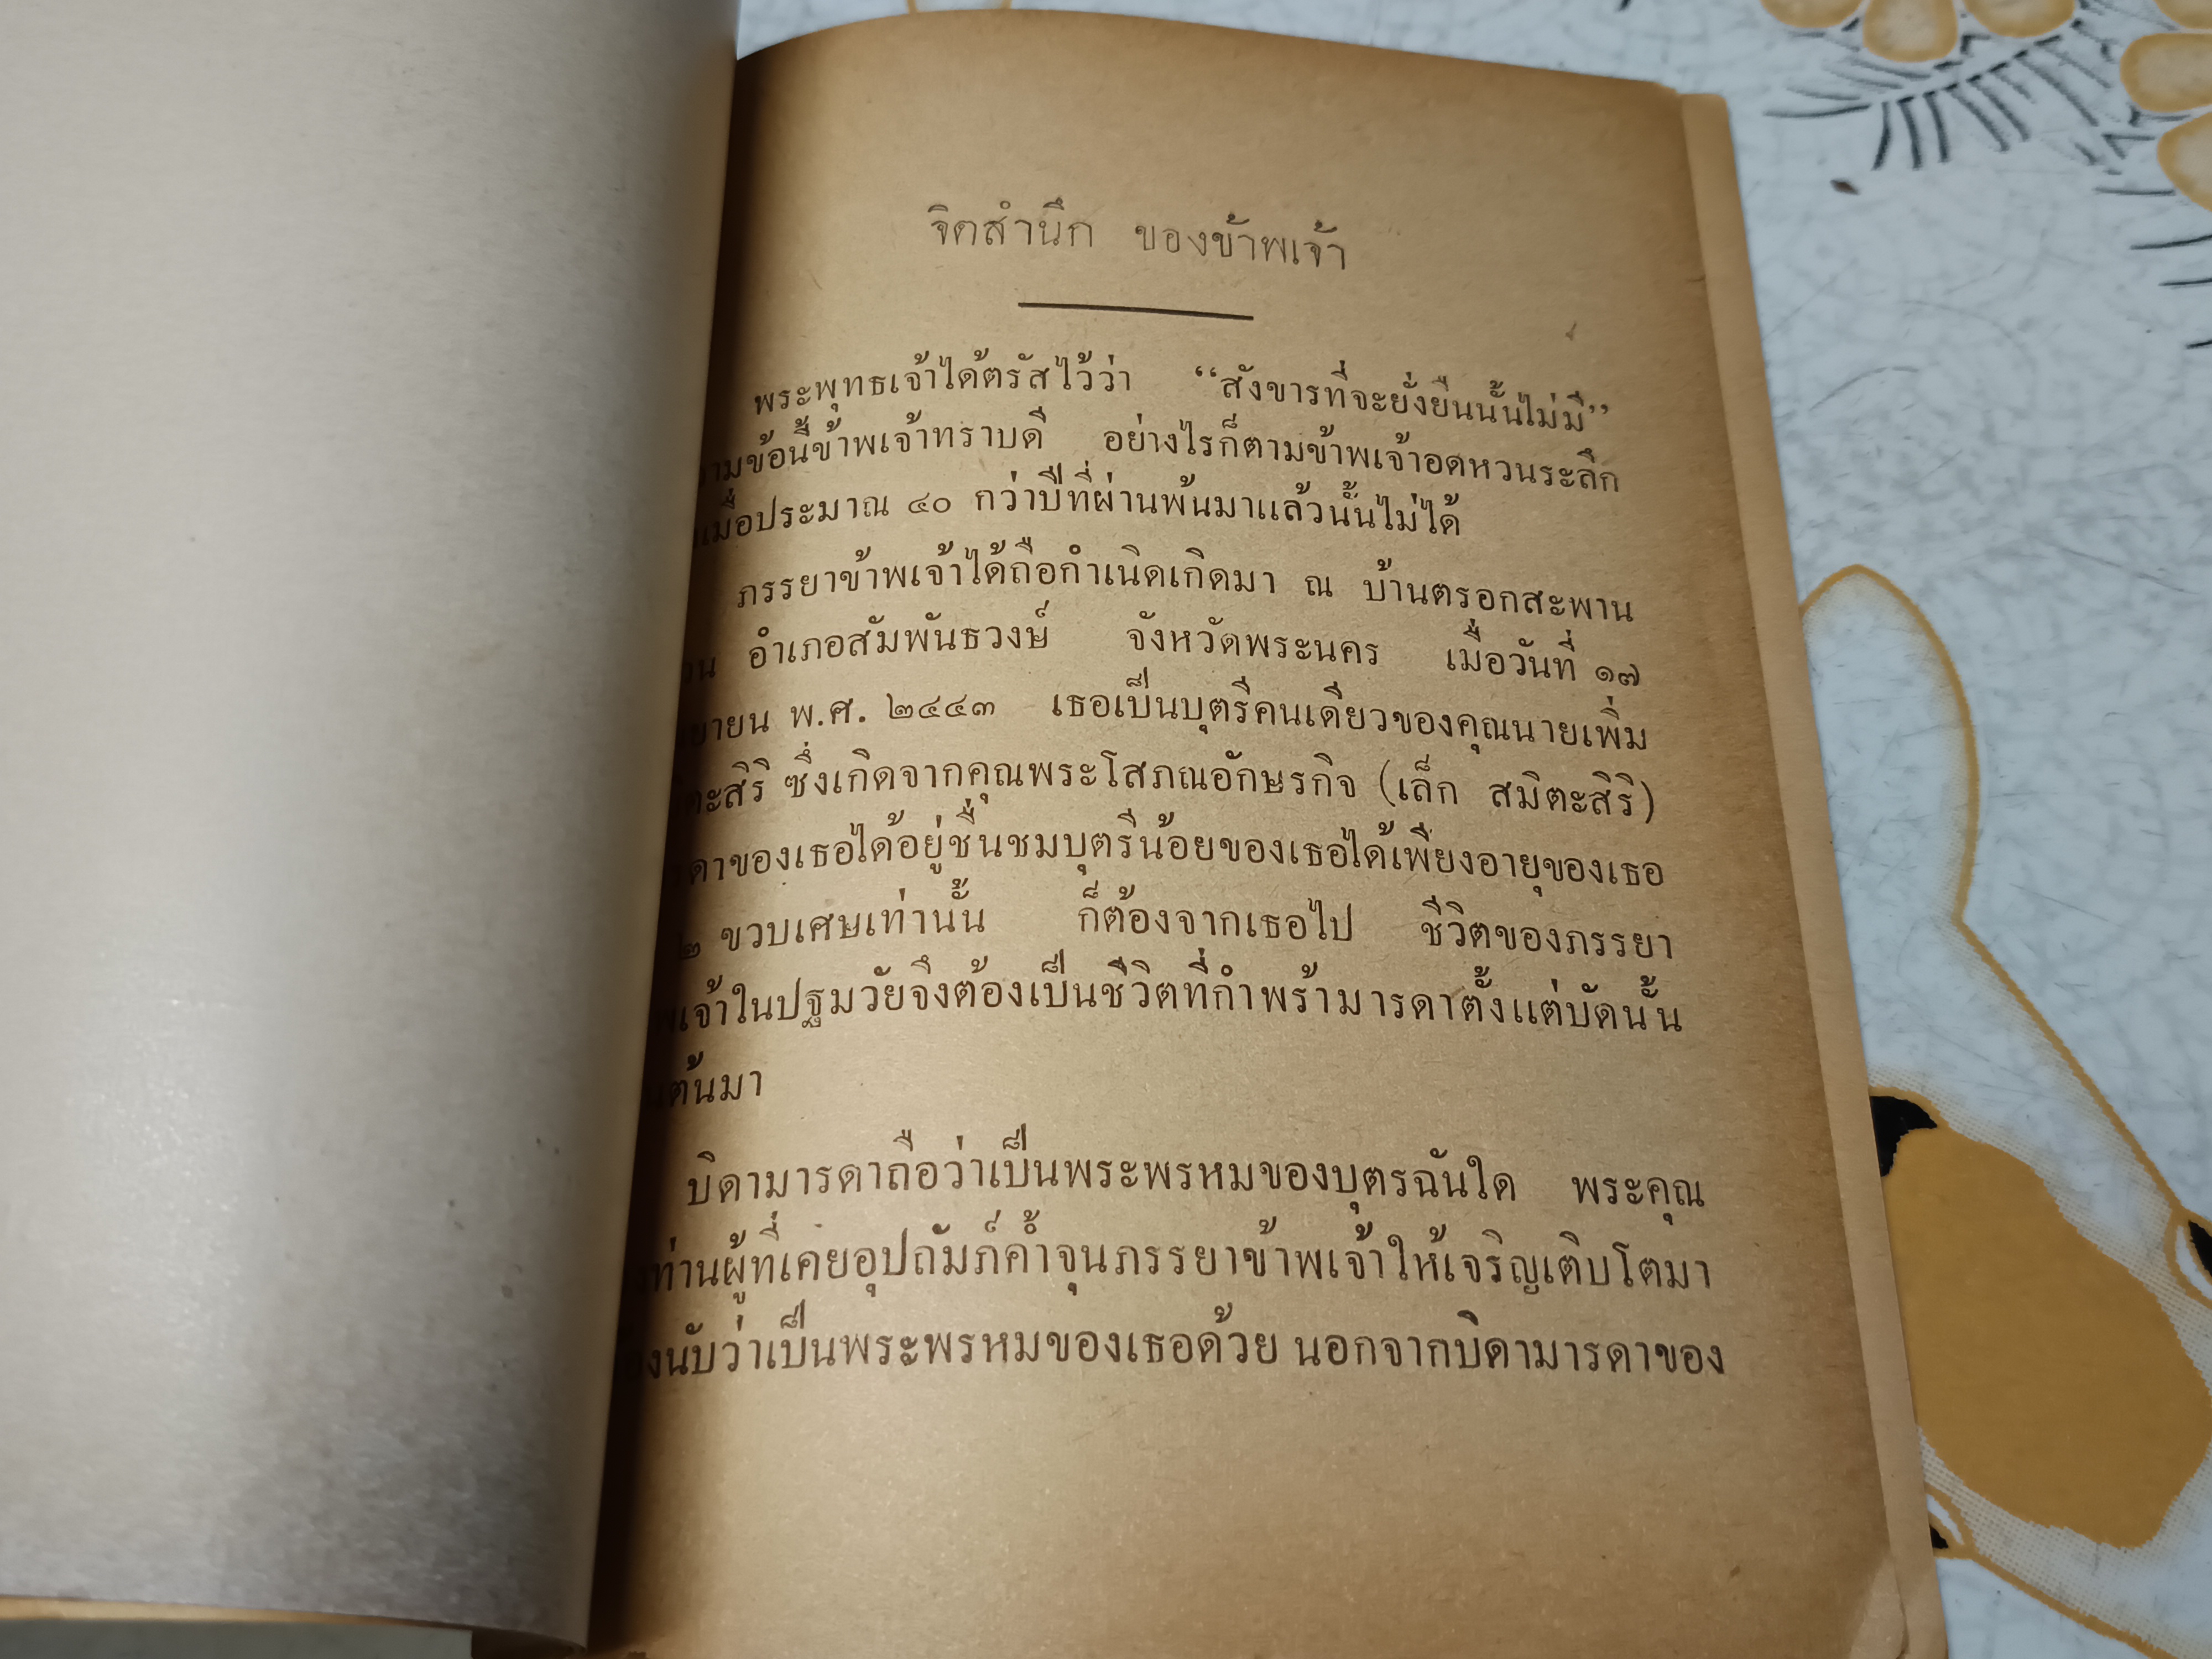 จิตสำนึก ของข้าพเจ้า
พระพุทธเจ้าได้ตรัสไว้ว่า “สังขารที่จะยั่งยืนนั้นไม่มี”
ข้อนี้ข้าพเจ้าทราบดี อย่างไรก็ตามข้าพเจ้าอดหวนระลึก
เมื่อประมาณ ๔๐ กว่าปีที่ผ่านพ้นมาแล้วนั้นไม่ได้
ภรรยาข้าพเจ้าได้ถือกำเนิดเกิดมา ณ บ้านตรอกสะพาน
อำเภอสัมพันธวงษ์ จังหวัดพระนคร เมื่อวันที่ ๑๗
พ.ศ. ๒๔๔๓ เธอเป็นบุตรีคนเดียวของคุณนายเพิ่ม
ซึ่งเกิดจากคุณพระโสภณอักษรกิจ (เล็ก สมิตะสิริ)
ของเธอได้อยู่ชื่นชมบุตรีน้อยของเธอได้เพียงอายุของเธอ
๒ ขวบเศษเท่านั้น ก็ต้องจากเธอไป ชีวิตของภรรยา
เจ้าในปฐมวัยจึงต้องเป็นชีวิตที่กำพร้ามารดาตั้งแต่บัดนั้น
ต้นมา
บิดามารดาถือว่าเป็นพระพรหมของบุตรฉันใด พระคุณ
ท่านผู้ที่เคยอุปถัมภ์ค้ำจุนภรรยาข้าพเจ้าให้เจริญเติบโตมา
นับว่าเป็นพระพรหมของเธอด้วย นอกจากบิดามารดาของ